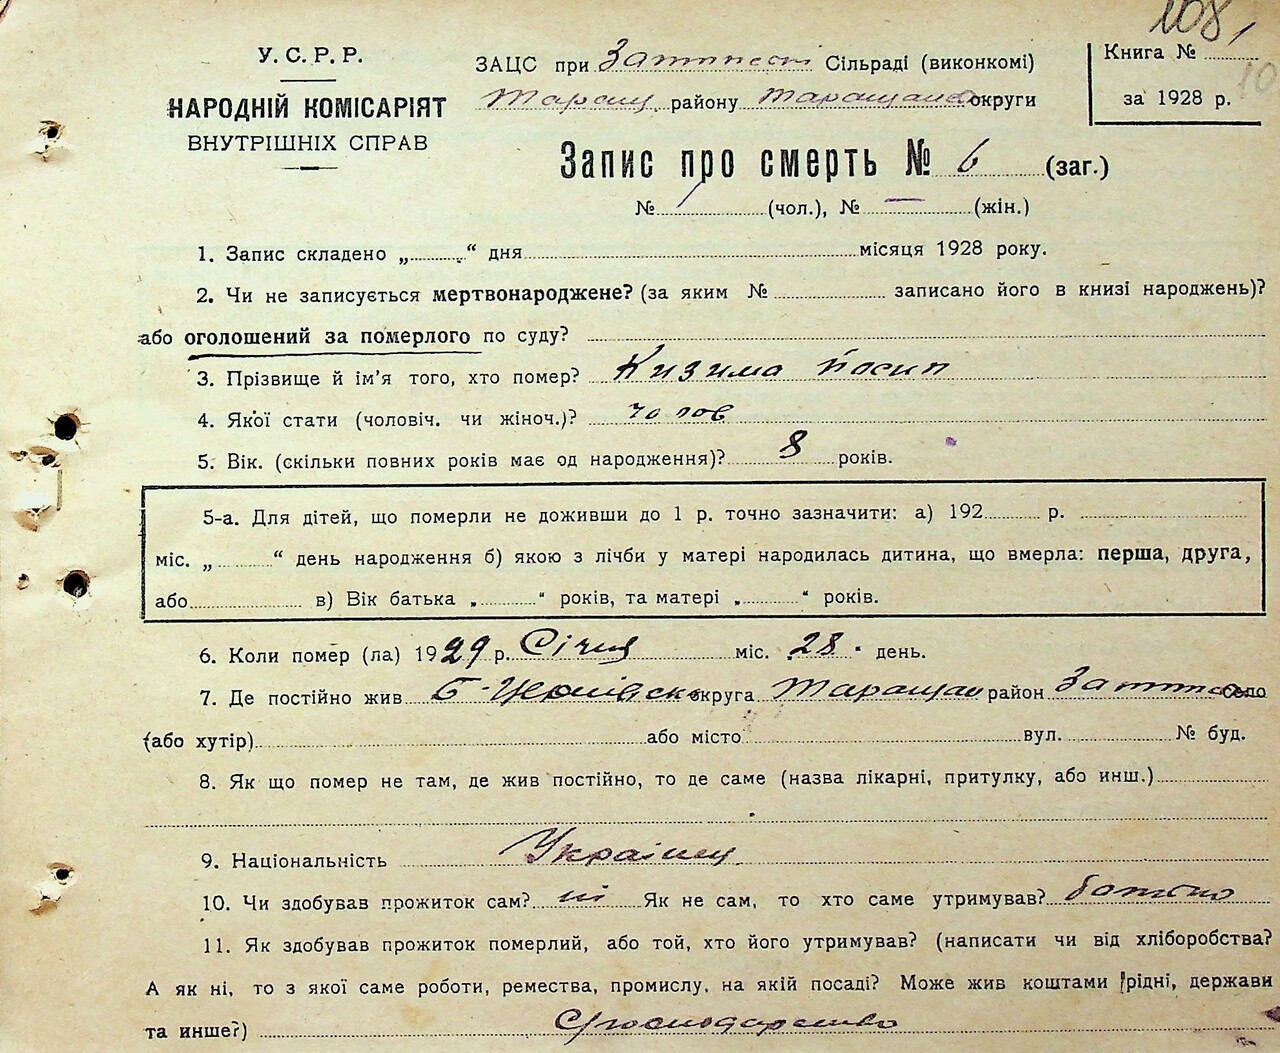 108,
У.С.Р.Р.
НАРОДНІЙ КОМІСАРІЯТ
ВНУТРІШНІХ СПРАВ
ЗАЦС при Сільраді (виконкомі)
Таращ. району округи
Книга № 10
за 1928 р.
Запис про смерть № 6 (заг.)
№ 1 (чол.), № — (жін.)
1. Запис складено „ “ дня місяця 1928 року.
2. Чи не записується мертвонароджене? (за яким № записано його в книзі народжень)?
або оголошений за померлого по суду?
3. Прізвище й ім'я того, хто помер? Кизима Йосип
4. Якої стати (чоловіч. чи жіноч.)? чолов
5. Вік. (скільки повних років має од народження)? 8 років.
5-а. Для дітей, що померли не доживши до 1 р. точно зазначити: а) 192 р.
міс. „ “ день народження б) якою з лічби у матері народилась дитина, що вмерла: перша, друга,
або в) Вік батька „ “ років, та матері „ “ років.
6. Коли помер (ла) 1929 р. Січня міс. 28 день.
7. Де постійно жив Б-Церківська округа Таращан район село
(або хутір) або місто вул. № буд.
8. Як що помер не там, де жив постійно, то де саме (назва лікарні, притулку, або инш.)
9. Національність Українец
10. Чи здобував прожиток сам? ні Як не сам, то хто саме утримував? батько
11. Як здобував прожиток померлий, або той, хто його утримував? (написати чи від хліборобства?
А як ні, то з якої саме роботи, ремества, промислу, на якій посаді? Може жив коштами рідні, держави
та инше?)